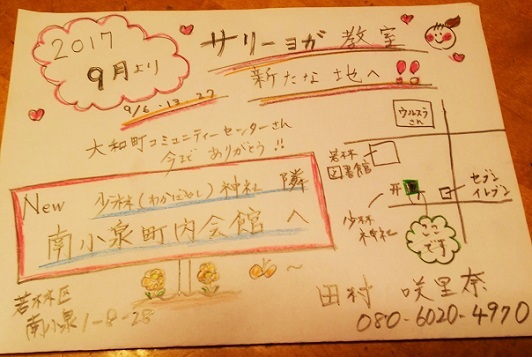 2017
9月より
サリーヨガ教室
新たな地へ!!
9/6・13・27
大和町コミュニティーセンターさん
今まで ありがとう!!
New 少林(わかばやし)神社 隣
南小泉町内会館 へ
ウルスラさん
若林図書館
セブンイレブン
少林神社
ここです
若林区
南小泉1-8-28
田村 咲里奈
080-6020-4970